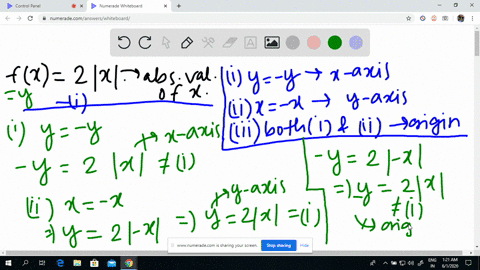 Control Panel
Numerade Whiteboard
numerade.com/answers/whiteboard/
f(x) = 2|x| → abs. val. of x.
= y — (i)
(i) y = -y → x-axis
(ii) x = -x → y-axis
(iii) both (i) & (ii) → origin
(i) y = -y
x-axis
-y = 2 |x| ≠ (i)
(ii) x = -x
⇒ y = 2|-x|
y-axis
⇒ y = 2|x| = (i)
-y = 2|-x|
⇒ -y = 2|x|
≠ (i)
orig
numerade.com is sharing your screen.
Stop sharing
Hide
1:21 AM
6/1/2020